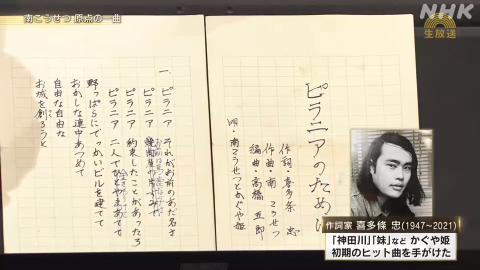 南こうせつ 原点の一曲
NHK
生放送
ピラニアのために
作詞・喜多条 忠
作曲・南 こうせつ
編曲・高橋 五郎
唄・南こうせつとかぐや姫
一、ピラニア それがお前のあだ名さ
ピラニア
ピラニア 約束したことがあったろ
ピラニア 二人でひとやまあてて
野っぱらにでっかいビルを建てて
おかしな連中あつめて
自由な自由な
お城を創ろうと
作詞家 喜多條 忠(1947~2021)
「神田川」「妹」など かぐや姫
初期のヒット曲を手がけた